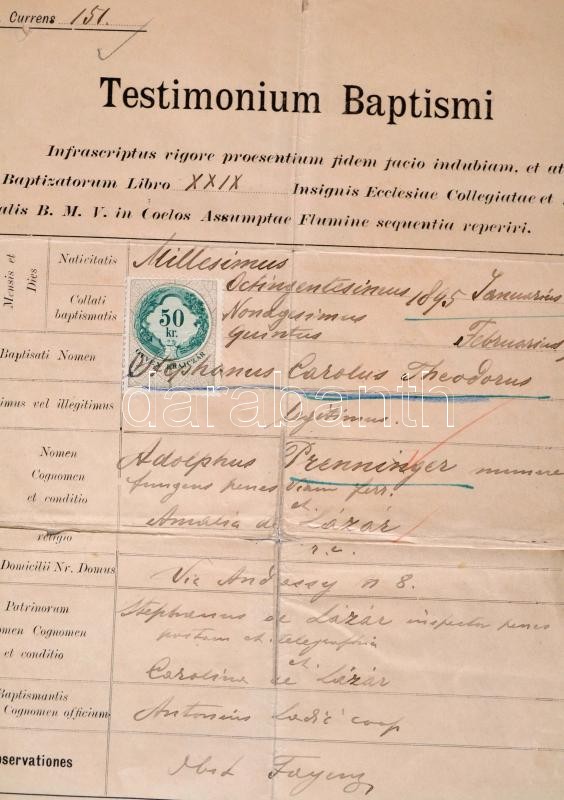 Currens 151.
Testimonium Baptismi
Infrascriptus vigore proesentium fidem facio indubiam, et at
Baptizatorum Libro XXIX Insignis Ecclesiae Collegiatae et
alis B. M. V. in Coelos Assumptae Flumine sequentia reperiri.
Mensis et Dies
Nativitatis
Millesimus
Octingentesimus 1895 Januarius
Collati baptismatis
Nonagesimus
Quintus Februarius
50
kr.
Baptisati Nomen
Stephanus Carolus Theodorus
imus vel illegitimus
legitimus.
Nomen
Cognomen
et conditio
Adolphus Prenninger munere
fungens penes viam ferr.
et
Amalia de Lázár
religio
r. c.
Domicilii Nr. Domus
Via Andrassy n 8.
Patrinorum
omen Cognomen
et conditio
Stephanus de Lázár inspector penes
postam et telegraphia
et
Carolina de Lázár
Baptismantis
Cognomen officium
Antonius coop
servationes
Obst.
darabanth